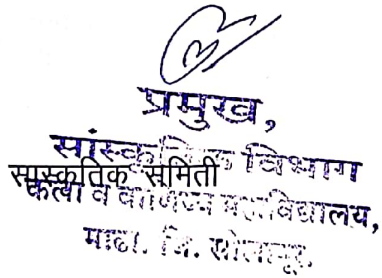 प्रमुख,
सांस्कृतिक विभाग
सास्कृतिक समिती
कला व वाणिज्य महाविद्यालय,
माढा. जि. सोलापूर.